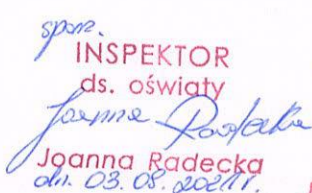 sporz.
INSPEKTOR
ds. oświaty
Joanna Radecka
Joanna Radecka
dn. 03.08.2021r.